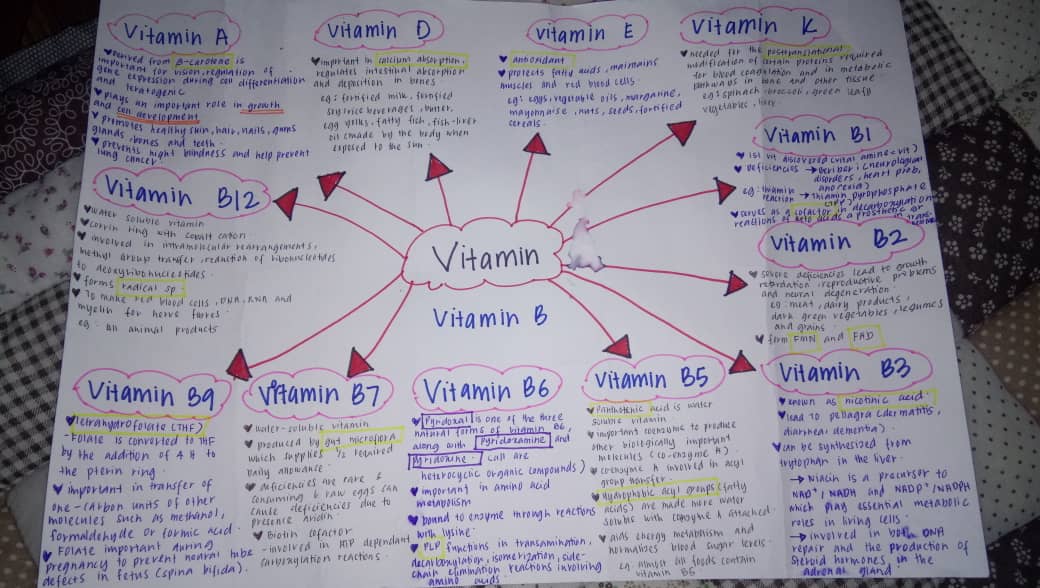 Vitamin A
derived from β-carotene is
important for vision, regulation of
gene expression during cell differentiation
and teratogenic
plays an important role in growth
and cell development
promotes healthy skin, hair, nails, gums
glands, bones and teeth.
prevents night blindness and help prevent
lung cancer.
Vitamin D
important in calcium absorption,
regulates intestinal absorption
and deposition in bones
eg: fortified milk, fortified
soy/rice beverages, butter,
egg yolks, fatty fish, fish-liver
oil (made by the body when
exposed to the sun
Vitamin E
antioxidant
protects fatty acids, maintains
muscles and red blood cells.
eg: eggs, vegetable oils, margarine,
mayonnaise, nuts, seeds, fortified
cereals.
Vitamin K
needed for the posttranslational
modification of certain proteins required
for blood coagulation and in metabolic
pathways in bone and other tissue.
eg: spinach, broccoli, green leafy
vegetables, liver.
Vitamin B1
1st vit discovered (vital amine = vit)
deficiencies → beriberi (neurological
disorders, heart prob,
anorexia)
eg: thiamin
reaction → thiamin pyrophosphate
serves as a cofactor in decarboxylation
Vitamin B2
severe deficiencies lead to growth
retardation, reproductive problems
and neural degeneration.
eg: meat, dairy products,
dark green vegetables, legumes
and grains.
form FMN and FAD
Vitamin B12
water soluble vitamin
corrin ring with cobalt cation.
involved in intramolecular rearrangements,
methyl group transfer, reduction of ribonucleotides
to deoxyribonucleotides.
forms radical sp.
to make red blood cells, DNA, RNA and
myelin for nerve fibres.
eg: all animal products
Vitamin
Vitamin B
Vitamin B9
Tetrahydrofolate (THF)
- Folate is converted to THF
by the addition of 4 H to
the pterin ring.
important in transfer of
one-carbon units of other
molecules such as methanol,
formaldehyde or formic acid.
Folate important during
pregnancy to prevent neural tube
defects in fetus (spina bifida).
Vitamin B7
water-soluble vitamin
produced by gut microflora
which supplies 1/2 required
daily allowance.
deficiencies are rare &
consuming 6 raw eggs can
cause deficiencies due to
presence avidin.
Biotin cofactor
- involved in ATP dependant
carboxylation reactions.
Vitamin B6
Pyridoxal is one of the three
natural forms of vitamin B6,
along with Pyridoxamine and
Pyridoxine. (all are
heterocyclic organic compounds)
important in amino acid
metabolism
bound to enzyme through reactions
with lysine.
PLP functions in transamination,
decarboxylation, isomerization, side-
chain elimination reactions involving
amino acids.
Vitamin B5
Panthothenic acid is water
soluble vitamin.
important coenzyme to produce
other biologically important
molecules (co-enzyme A)
coenzyme A involved in acyl
group transfer.
Hydrophobic acyl groups (fatty
acids) are made more water
soluble with coenzyme A attached.
aids energy metabolism and
normalizes blood sugar levels.
eg: almost all foods contain
vitamin B5
Vitamin B3
known as nicotinic acid.
lead to pellagra (dermatitis,
diarrhea, dementia).
can be synthesized from
tryptophan in the liver.
→ Niacin is a precursor to
NAD⁺/NADH and NADP⁺/NADPH
which play essential metabolic
roles in living cells.
→ involved in both DNA
repair and the production of
steroid hormones in the
adrenal gland.